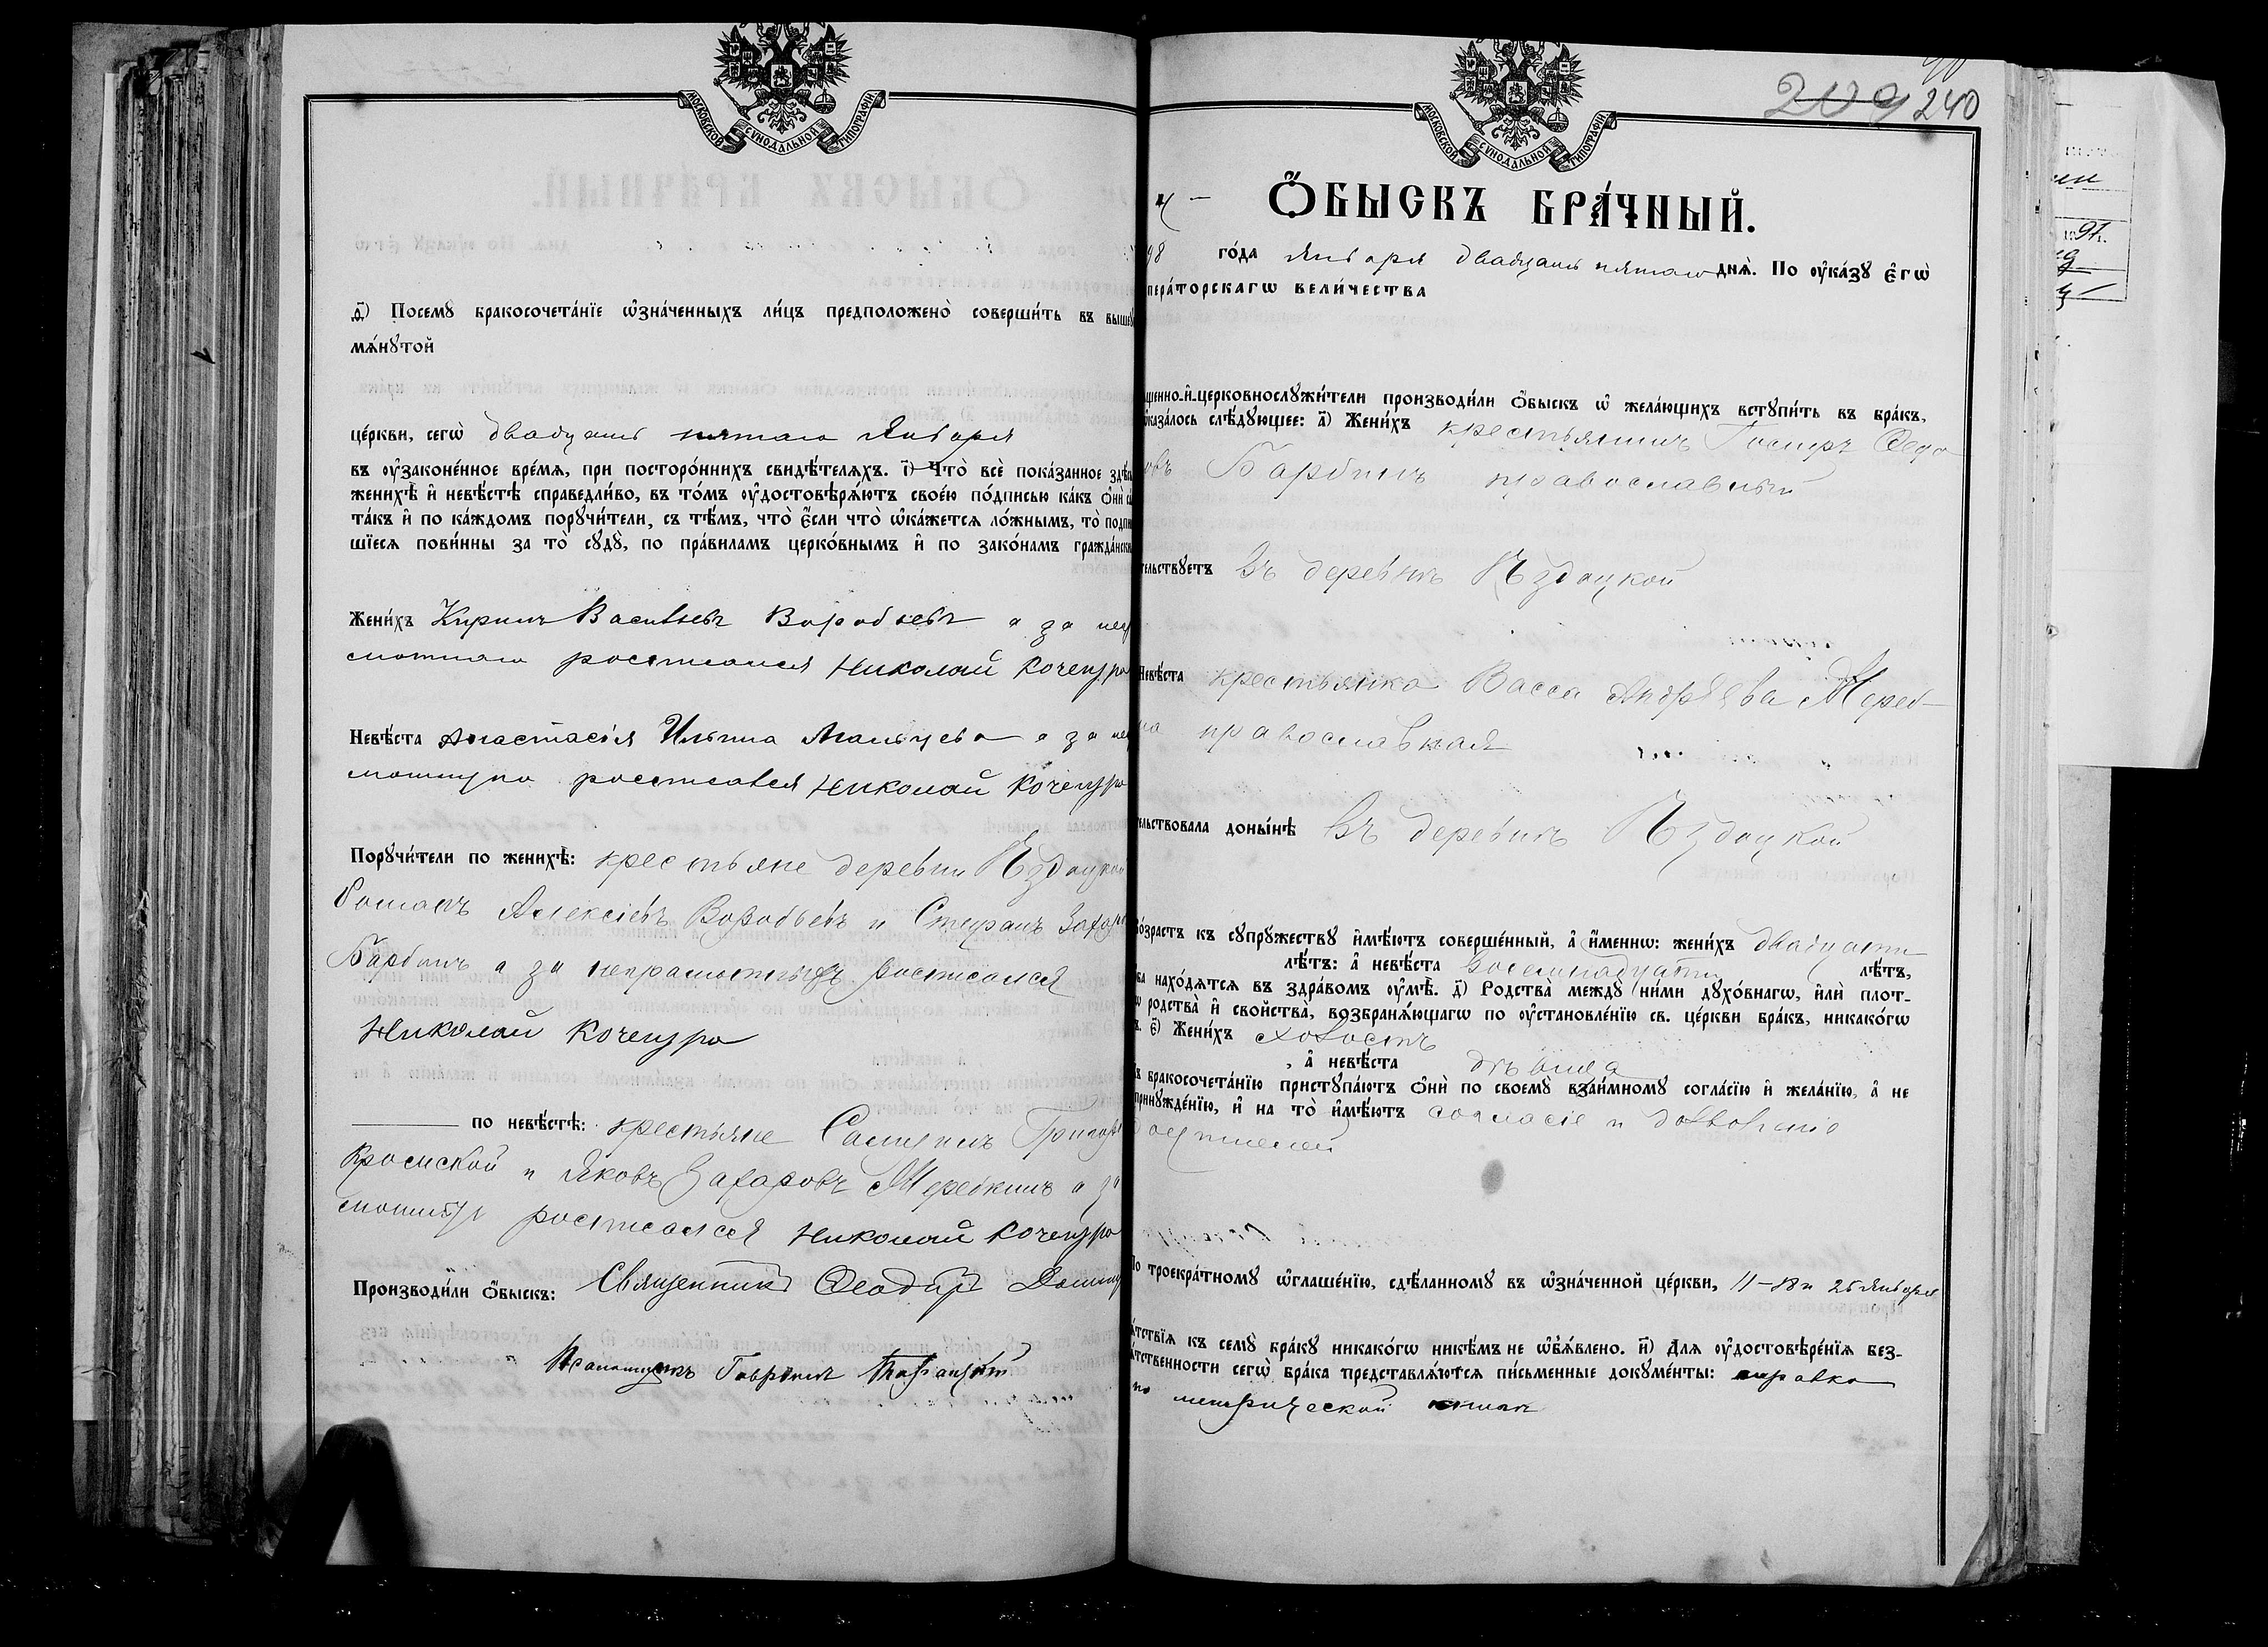 МОСКОВСКОЙ СѴНОДАЛЬНОЙ ТИПОГРАФІИ
д҃) Посемꙋ бракосочета́нїе ѡ҆зна́ченныхъ ли́цъ предположено̀ соверши́ть въ выше
мѧ́нꙋтой
це́ркви, сегѡ̀ двадцать пятаго Января
въ ᲂу҆законе́нное вре́мѧ, при посторо́ннихъ свидѣ́телѧхъ. і҃) Что̀ всѐ пока́занное здѣ
женихѣ̀ и҆ невѣ́стѣ справедли́во, въ то́мъ ᲂу҆достовѣрѧ́ютъ свое́ю по́дписью ка́къ ѻ҆нѝ са
та́къ и҆ по ка́ждомъ порꙋчи́тели, съ тѣ́мъ, что̀ є҆́сли что̀ ѡ҆ка́жетсѧ ло́жнымъ, то̀ подпи
шїесѧ пови́нны за то̀ сꙋдꙋ̀, по пра́виламъ церко́внымъ и҆ по зако́намъ гражда́нски
Жени́хъ Кирилъ Васильевъ Воробьевъ а за негр
мотнаго росписался Николай Кочегуро
Невѣ́ста Анастасія Ильина Мальцева а за нег
мотную росписался Николай Кочегуро
Порꙋчи́тели по женихѣ̀: крестьяне деревни Ꙗздоцкой
Романъ Алексіевъ Воробьевъ и Стефанъ Захар
Барбинъ а за неграмотныхъ росписался
Николай Кочегуро
по невѣ́стѣ: крестьяне Григор
Кромской и Яковъ Захаровъ Жеребкинъ а за
росписался Николай Кочегуро
Производи́ли ѻ҆́быскъ: Священникъ Ѳеодоръ
Псаломщикъ Гавріилъ
МОСКОВСКОЙ СѴНОДАЛЬНОЙ ТИПОГРАФІИ
209 240
Ѻ҆́БЫСКЪ БРА́ЧНЫЙ.
98 го́да Января двадцать пятаго днѧ̀. По ᲂу҆ка́зꙋ є҆гѡ̀
пера́торскагѡ вели́чества
щенно-и҆-церковнослꙋжи́тели производи́ли ѻ҆́быскъ ѡ҆ жела́ющихъ встꙋпи́ть въ бра́къ,
ѡ҆каза́лось слѣ́дꙋющее: а҃) Жени́хъ крестьянинъ Іосифъ Ѳедо
овъ Барбинъ православный
тельствꙋетъ въ деревнѣ Ꙗздоцкой
Невѣ́ста крестьянка Васса Андрѣева Жереб-
на православная
тельствовала доны́нѣ въ деревнѣ Ꙗздоцкой
Во́зрастъ къ сꙋпрꙋжествꙋ и҆мѣ́ютъ соверше́нный, а҆ и҆́меннѡ: жени́хъ двадцати
лѣ́тъ: а҆ невѣ́ста восемнадцати лѣ́тъ,
ба нахо́дѧтсѧ въ здра́вомъ ᲂу҆мѣ̀. д҃) Родства̀ междꙋ̀ ни́ми дꙋхо́внагѡ, и҆лѝ плот-
ѡ родства̀ и҆ свойства̀, возбранѧ́ющагѡ по ᲂу҆становле́нїю св. це́ркви бра́къ, никако́гѡ
ъ. є҃) Жени́хъ холостъ
, а҆ невѣ́ста дѣвица
ъ бракосочета́нїю пристꙋпа́ютъ ѻ҆нѝ по своемꙋ̀ взаи́мномꙋ согла́сїю и҆ жела́нїю, а҆ не
принꙋжде́нїю, и҆ на то̀ и҆мѣ́ютъ согласіе и дозволеніе
родителей
По троекра́тномꙋ ѡ҆глаше́нїю, сдѣ́ланномꙋ въ ѡ҆зна́ченной це́ркви, 11-18 и 25 Января
ѧ́тствїѧ къ семꙋ̀ бра́кꙋ никако́гѡ никѣ́мъ не ѡ҆б̾ѧ́влено. и҃) Длѧ ᲂу҆достовѣре́нїѧ без-
ѧ́тственности сегѡ̀ бра́ка представлѧ́ютсѧ пи́сьменные докꙋме́нты: справка
по метрической книгѣ